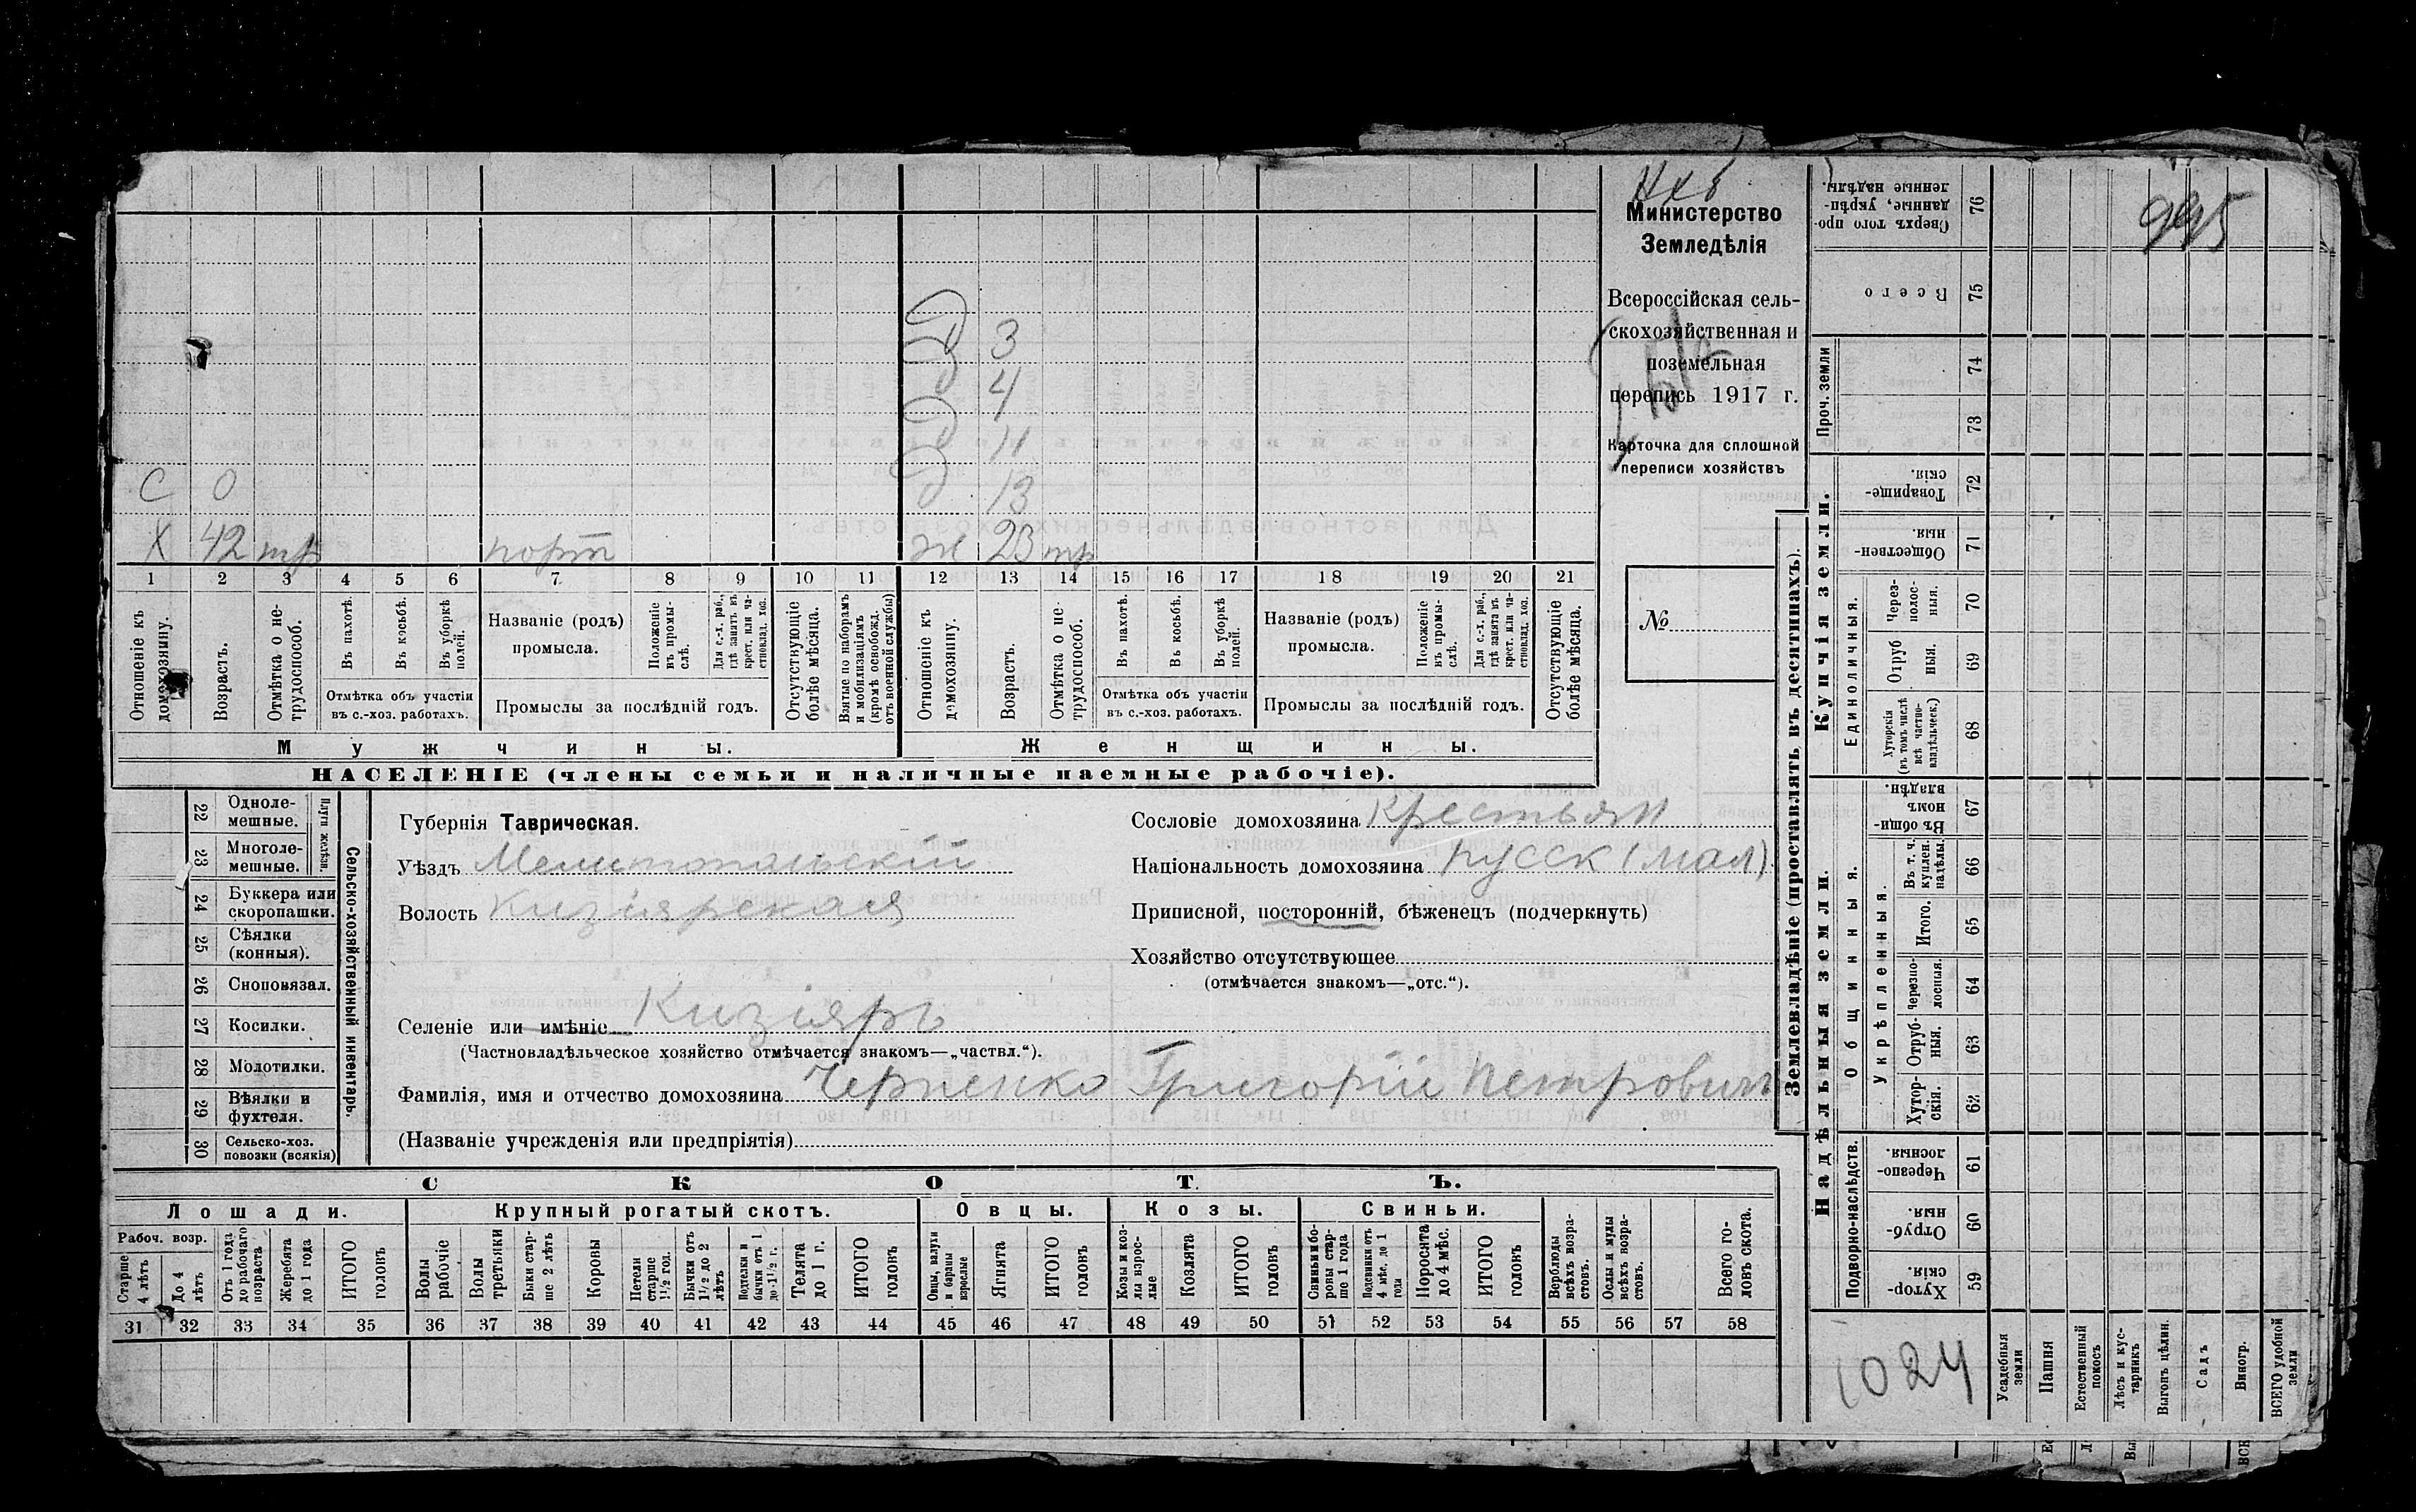 995
Министерство
Земледѣлія
Всероссійская сель-
скохозяйственная и
поземельная
перепись 1917 г.
Карточка для сплошной
переписи хозяйствъ
№
Д 3
Д 4
Д 11
Д 13
С 0
Х 42 тр порт ж 23 тр
1 2 3 4 5 6 7 8 9 10 11 12 13 14 15 16 17 18 19 20 21
Отношеніе къ домохозяину.
Возрастъ.
Отмѣтка о не-трудоспособ.
Въ пахотѣ.
Въ косьбѣ.
Въ уборкѣ полей.
Отмѣтка объ участіи
въ с.-хоз. работахъ.
Названіе (родъ)
промысла.
Положеніе въ промы-слѣ.
Для с.-х. раб., гдѣ занятъ въ крест. или ча-стновлад. хоз.
Промыслы за послѣдній годъ.
Отсутствующіе болѣе мѣсяца.
Взятые по наборамъ и мобилизаціямъ (кромѣ освобожд. отъ военной службы)
Отношеніе къ домохозяину.
Возрастъ.
Отмѣтка о не-трудоспособ.
Въ пахотѣ.
Въ косьбѣ.
Въ уборкѣ полей.
Отмѣтка объ участіи
въ с.-хоз. работахъ.
Названіе (родъ)
промысла.
Положеніе въ промы-слѣ.
Для с.-х. раб., гдѣ занята въ крест. или ча-стновлад. хоз.
Промыслы за послѣдній годъ.
Отсутствующіе болѣе мѣсяца.
Мужчины. Женщины.
НАСЕЛЕНІЕ (члены семьи и наличные наемные рабочіе).
Сельско-хозяйственный инвентарь.
Плуги желѣзн.
22 Однолемешные.
23 Многолемешные.
24 Буккера или скоропашки.
25 Сѣялки (конныя).
26 Сноповязал.
27 Косилки.
28 Молотилки.
29 Вѣялки и фухтеля.
30 Сельско-хоз. повозки (всякія)
Губернія Таврическая.
Уѣздъ Мелитопольскій
Волость Кизіярская
Сословіе домохозяина крестьян
Національность домохозяина русск (мал)
Приписной, посторонній, бѣженецъ (подчеркнуть)
Хозяйство отсутствующее
(отмѣчается знакомъ—„отс.“).
Селеніе или имѣніе Кизіяръ
(Частновладѣльческое хозяйство отмѣчается знакомъ—„частвл.“).
Фамилія, имя и отчество домохозяина Черненко Григорій Петрович
(Названіе учрежденія или предпріятія)
СКОТЪ.
Лошади. Крупный рогатый скотъ. Овцы. Козы. Свиньи.
Рабоч. возр.
Старше 4 лѣтъ
До 4 лѣтъ
Отъ 1 года до рабочаго возраста
Жеребята до 1 года
ИТОГО головъ
Волы рабочіе
Волы третьяки
Быки стар-ше 2 лѣтъ
Коровы
Нетели старше 1½ год.
Бычки отъ 1½ до 2 лѣтъ
Подтелки и бычки отъ 1 до 1½ г.
Телята до 1 г.
ИТОГО головъ
Овцы, валухи и бараны взрослые
Ягнята
ИТОГО головъ
Козы и коз-лы взрос-лые
Козлята
ИТОГО головъ
Свиньи и бо-ровы стар-ше 1 года
Подсвинки отъ 4 мѣс. до 1 года
Поросята до 4 мѣс.
ИТОГО головъ
Верблюды всѣхъ возра-стовъ.
Ослы и мулы всѣхъ возра-стовъ.
Всего го-ловъ скота.
31 32 33 34 35 36 37 38 39 40 41 42 43 44 45 46 47 48 49 50 51 52 53 54 55 56 57 58
Землевладѣніе (проставлять въ десятинахъ).
Купчія земли.
Надѣльныя земли.
76 Сверхъ того про-данные, укрѣп-ленные надѣлы.
75 Всего
Проч. земли
74
73
72 Товарище-скія.
71 Обществен-ныя.
Единоличныя.
70 Через-полос-ныя.
69 Отруб ныя.
68 Хуторскія (въ томъ числѣ всѣ частно-владѣльческ.)
Общинныя.
67 Въ общи-номъ владѣн.
Укрѣпленныя.
66 Въ т. ч. куплен. надѣлы.
65 Итого.
64 Черезпо-лосныя.
63 Отруб-ныя.
62 Хутор-скія.
Подворно-наслѣдств.
61 Черезпо-лосныя.
60 Отруб-ныя.
59 Хутор-скія.
1024
Усадебныя земли
Пашня
Естественный покосъ
Лѣсъ и кус-тарникъ
Выгонъ цѣлин.
Садъ
Виногр.
ВСЕГО удобной земли